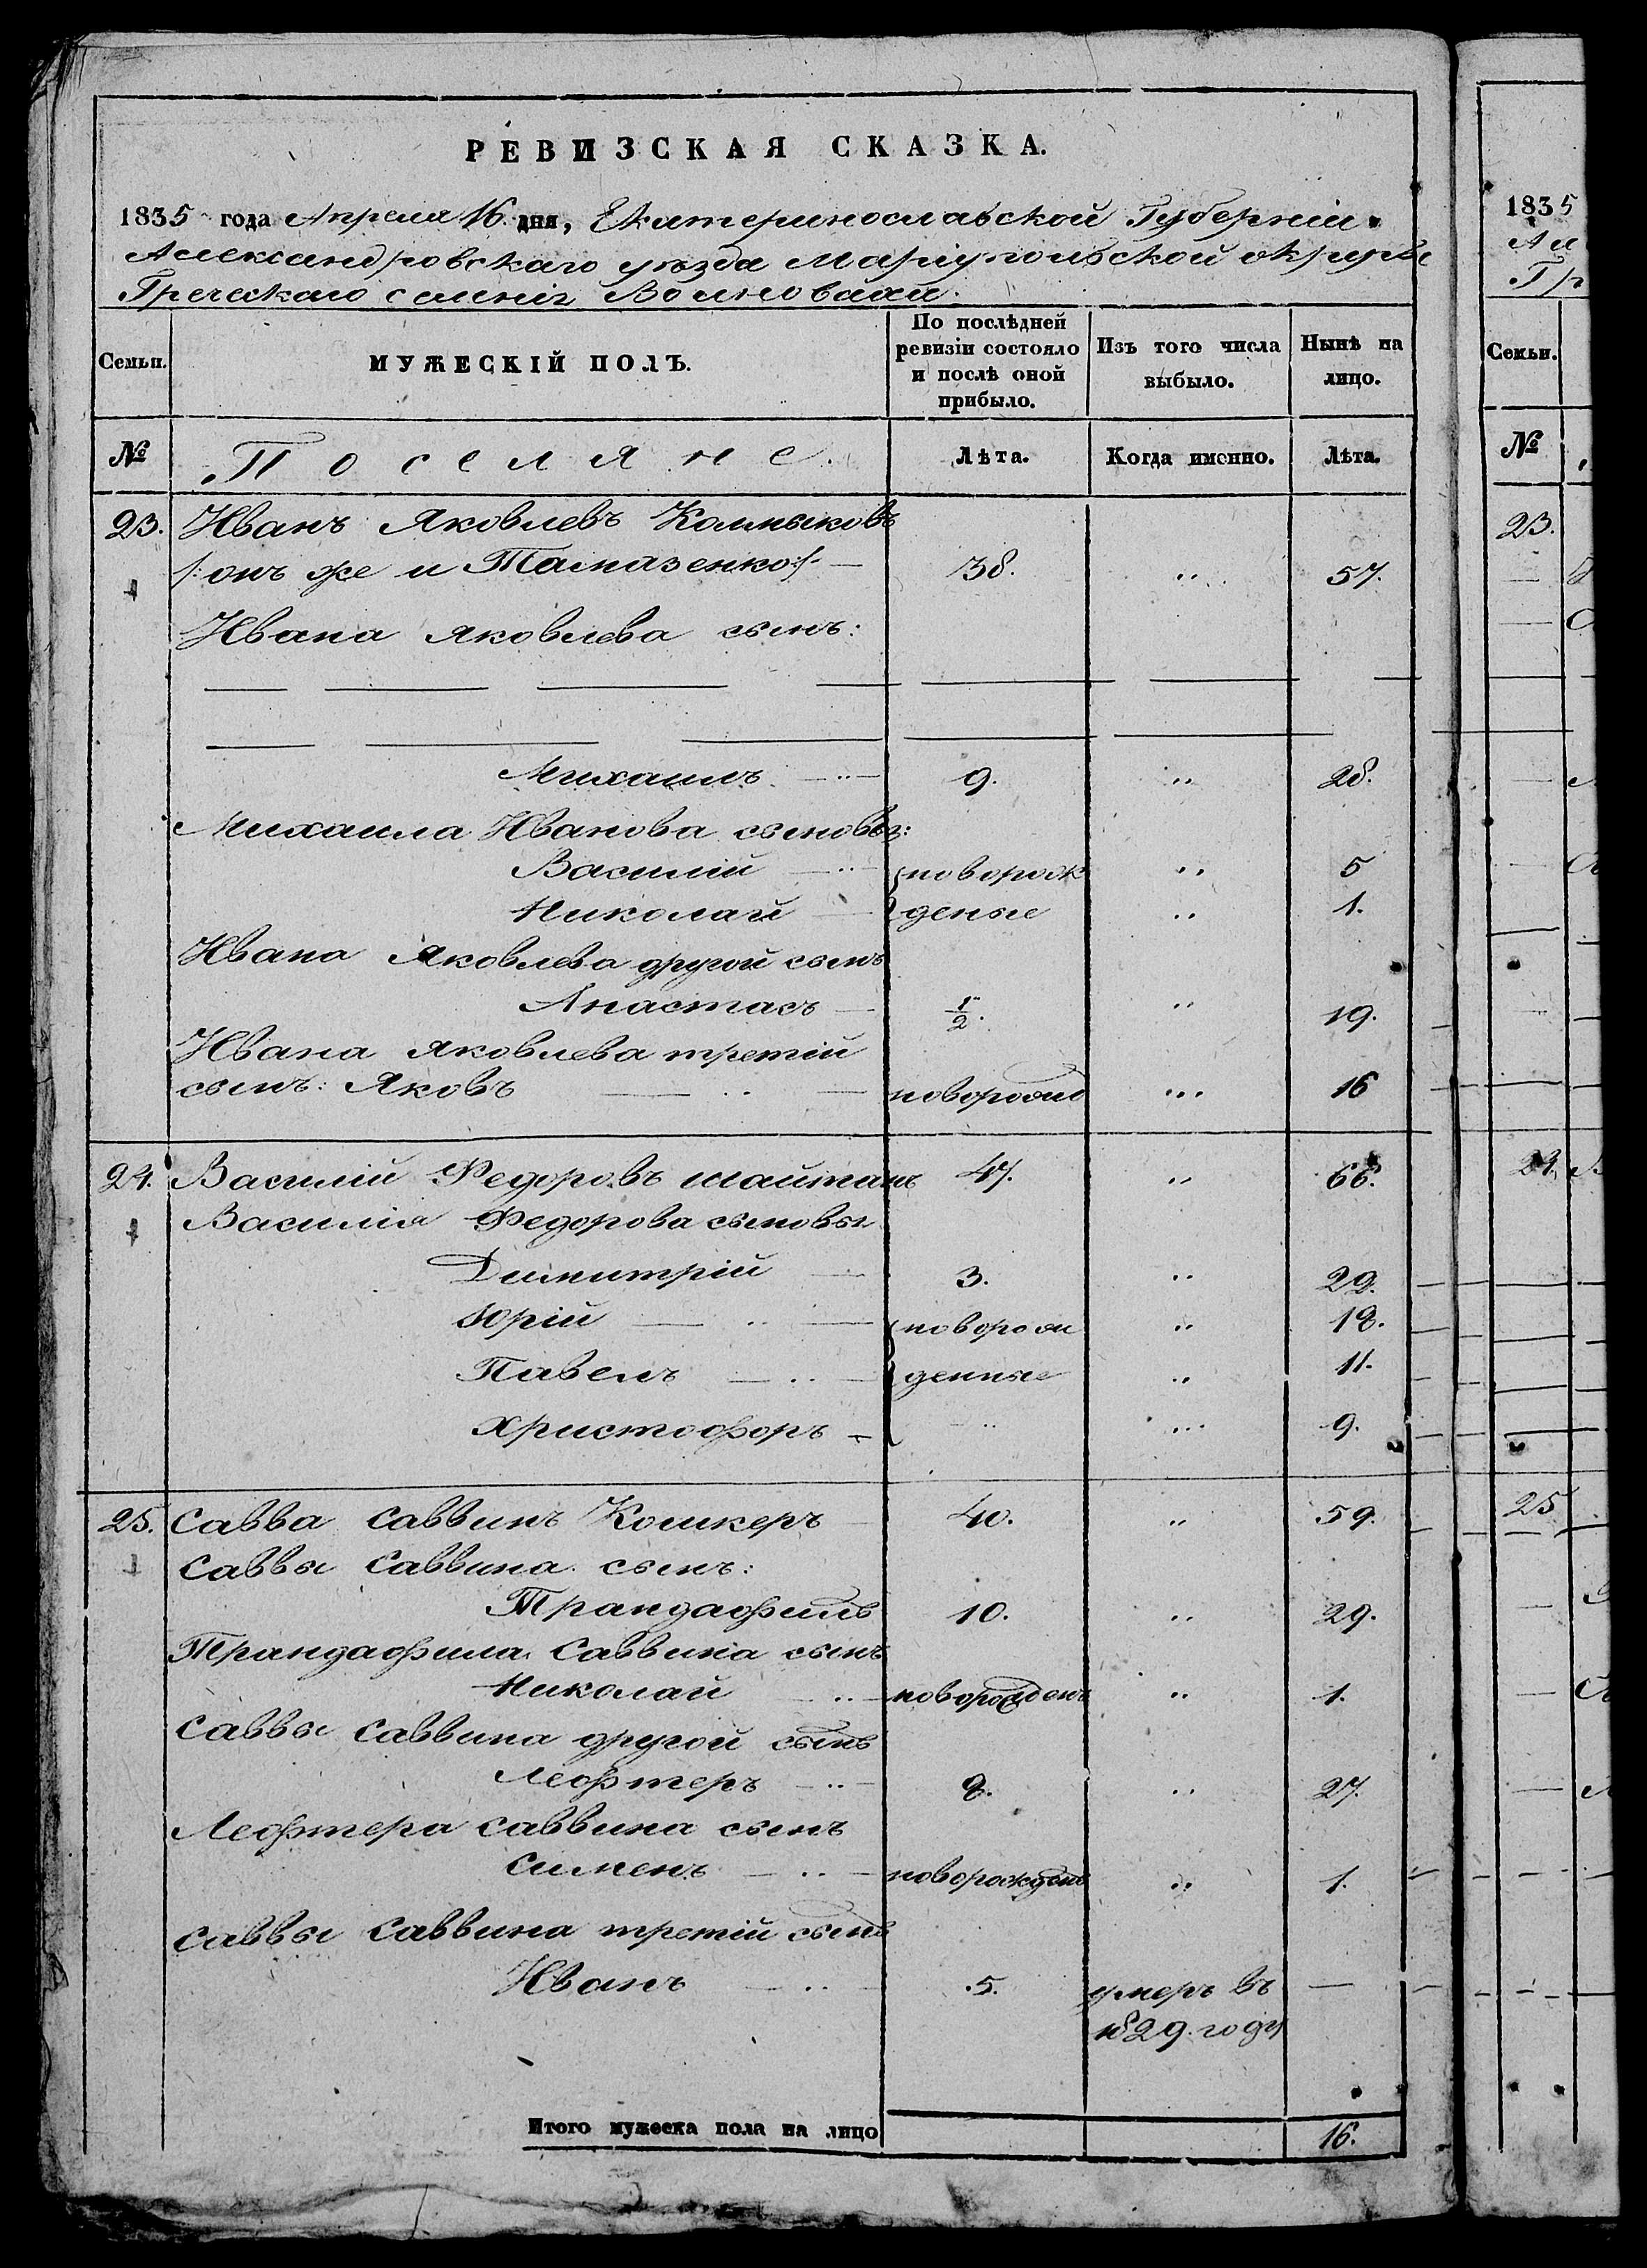 РЕВИЗСКАЯ СКАЗКА.
1835 года Апреля 16 дня, Екатеринославской Губерніи
Александровскаго уѣзда Маріупольской округи
Греческаго селенія Волновахи.
Семьи.
МУЖЕСКІЙ ПОЛЪ.
По послѣдней ревизіи состояло и послѣ оной прибыло.
Изъ того числа выбыло.
Нынѣ на лицо.
№ Поселяне. Лѣта. Когда именно. Лѣта.
23. Иванъ Яковлевъ Калмыковъ
/:онъ же и Талмазенко:/ 38. " 57.
Ивана Яковлева сынъ:
Михаилъ 9. " 28.
Михаила Иванова сыновья:
Василій новорож " 5
Николай деные " 1.
Ивана Яковлева другой сынъ
Анастасъ 1/2. " 19.
Ивана Яковлева третій
сынъ: Яковъ новорожд " 16
24. Василій Федоровъ Шайтанъ 47. " 66.
Василія Федорова сыновья
Димитрій 3. " 22.
Юрій новорож " 18.
Павелъ денные " 11.
Христофоръ " " 9.
25. Савва Саввинъ Кошкеръ 40. " 59.
Саввы Саввина сынъ:
Трандафилъ 10. " 29.
Трандафила Саввина сынъ
Николай новорожденъ " 1.
Саввы Саввина другой сынъ
Лефтеръ 8. " 27.
Лефтера Саввина сынъ
Сименъ новорожденъ " 1.
Саввы Саввина третій сынъ
Иванъ 5. умеръ въ —
1829. году
Итого мужеска пола на лицо 16.
1835
Ал
Гр
Семьи.
№
23.
24.
25